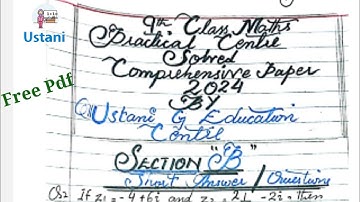 Ustani
Free Pdf
9th Class Maths
Practical Centre
Solved
Comprehensive Paper
2024
BY
Ustani G Education
Centre
SECTION "B"
Short Answer / Question
If z₁ = -4+6i and z₂ = 2½ -2i then